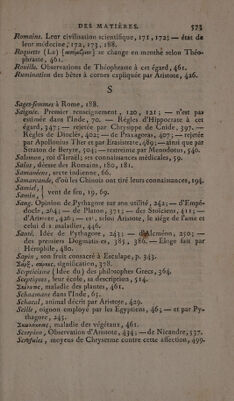 DES MATIÈRES. 573
Romains. Leur civilisation scientifique, 171, 172; — état de
leur médecine, 172, 173, 188.
Roquette (La) se change en menthe selon Théo-
phraste, 461.
Rouille. Observations de Théophraste à cet égard, 461.
Rumination des bêtes à cornes expliquée par Aristote, 426.
S
Sages-femmes à Rome, 188.
Saignée. Premier renseignement, 120, 121; — n'est pas
estimée dans l'Inde, 70. — Règles d'Hippocrate à cet
égard, 347; — rejetée par Chrysippe de Cnide, 397. —
Règles de Dioclès, 402; — de Praxagoras, 407; — rejetée
par Apollonius Ther et par Erasistrate, 489; — ainsi que par
Straton de Béryte, 504; — restreinte par Menodotus, 540.
Salomon, roi d'Israël; ses connaissances médicales, 59.
Salus, déesse des Romains, 180, 181.
Samanéens, secte indienne, 66.
Samarcande, d'où les Chinois ont tiré leurs connaissances, 194.
Samiel,
Samir, } vent de feu, 19, 69.
Sang. Opinion de Pythagore sur son utilité, 242; — d'Empé-
docle, 264; — de Platon, 371; — des Stoïciens, 411; —
d'Aristote, 426; — est, selon Aristote, le siége de l'ame et
celui de s maladies, 446.
Santé. Idée de Pythagore, 243; — d'Alcméon, 250; —
des premiers Dogmatistes, 385, 386. — Eloge fait par
Hérophile, 480.
Sapin, son fruit consacré à Esculape, p. 343.
signification, 378.
Scepticisme (Idée du) des philosophes Grecs, 364.
Sceptiques, leur école, sa description, 514.
maladie des plantes, 461.
Schaamane dans l'Inde, 65.
Schacal, animal décrit par Aristote, 429.
Seille, oignon employé par les Egyptiens, 46; — et par Py-
thagore, 245.
maladie des végétaux, 461.
Scorpion, Observation d'Aristote, 434; — de Nicandre, 537.
moyens de Chryserme contre cette affection, 499.